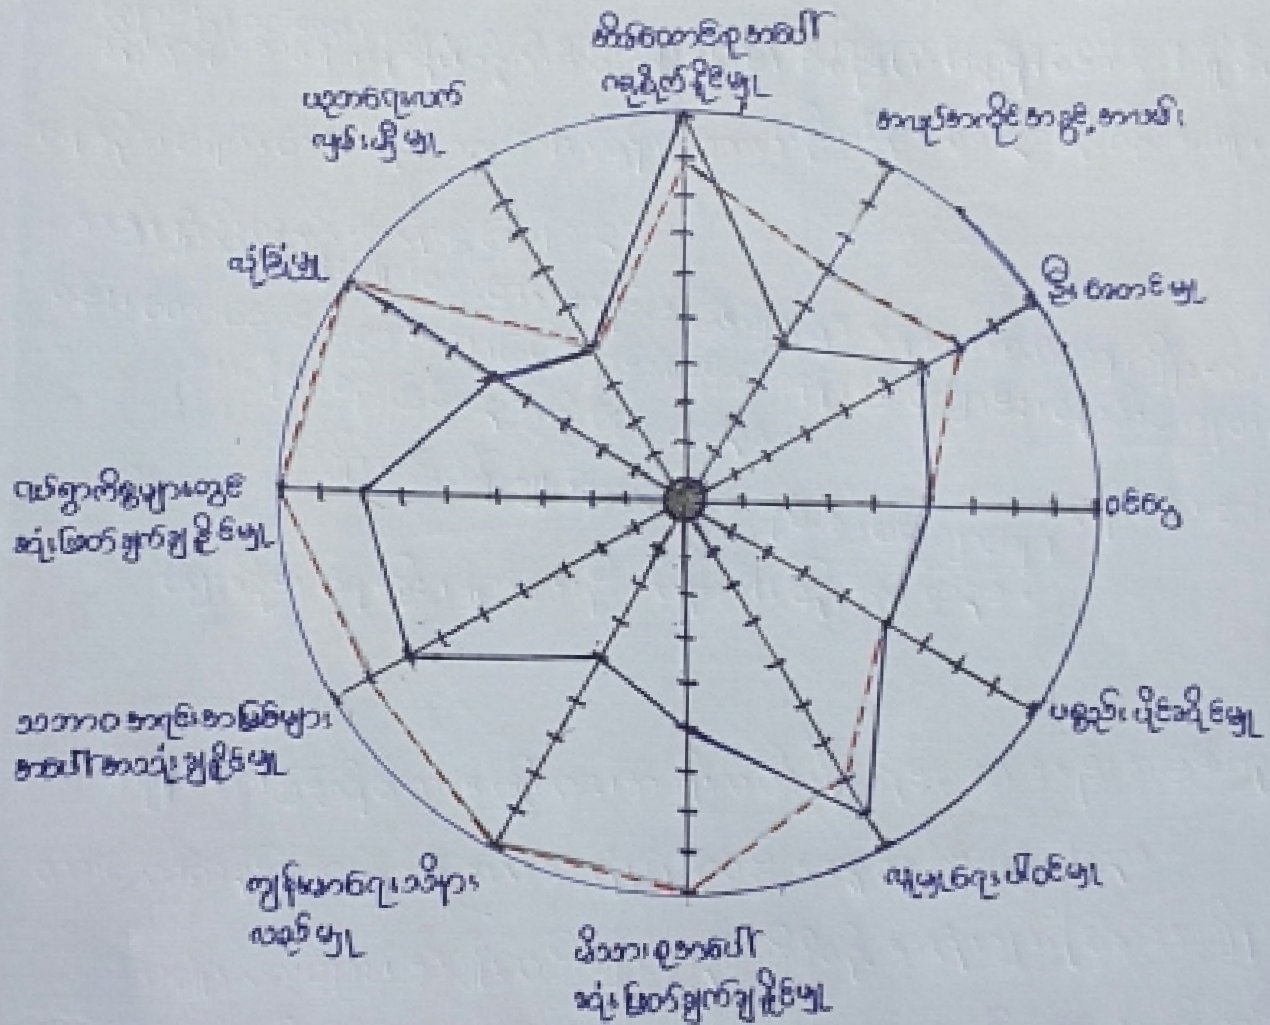 အိမ်ထောင်စုအပေါ်
ဂရုစိုက်နိုင်မှု
အလုပ်အကိုင်အခွင့်အလမ်း
ဦးဆောင်မှု
ဝင်ငွေ
ပစ္စည်းပိုင်ဆိုင်မှု
လူမှုရေးပါဝင်မှု
မိသားစုအပေါ်
ဆုံးဖြတ်ချက်ချနိုင်မှု
ကျန်းမာရေးသိနား
လည်မှု
သဘာဝအရင်းအမြစ်များ
အပေါ်အသုံးချနိုင်မှု
ရပ်ရွာကိစ္စများတွင်
ဆုံးဖြတ်ချက်ချနိုင်မှု
လုံခြုံမှု
ပညာရေးလက်
လှမ်းမှီမှု